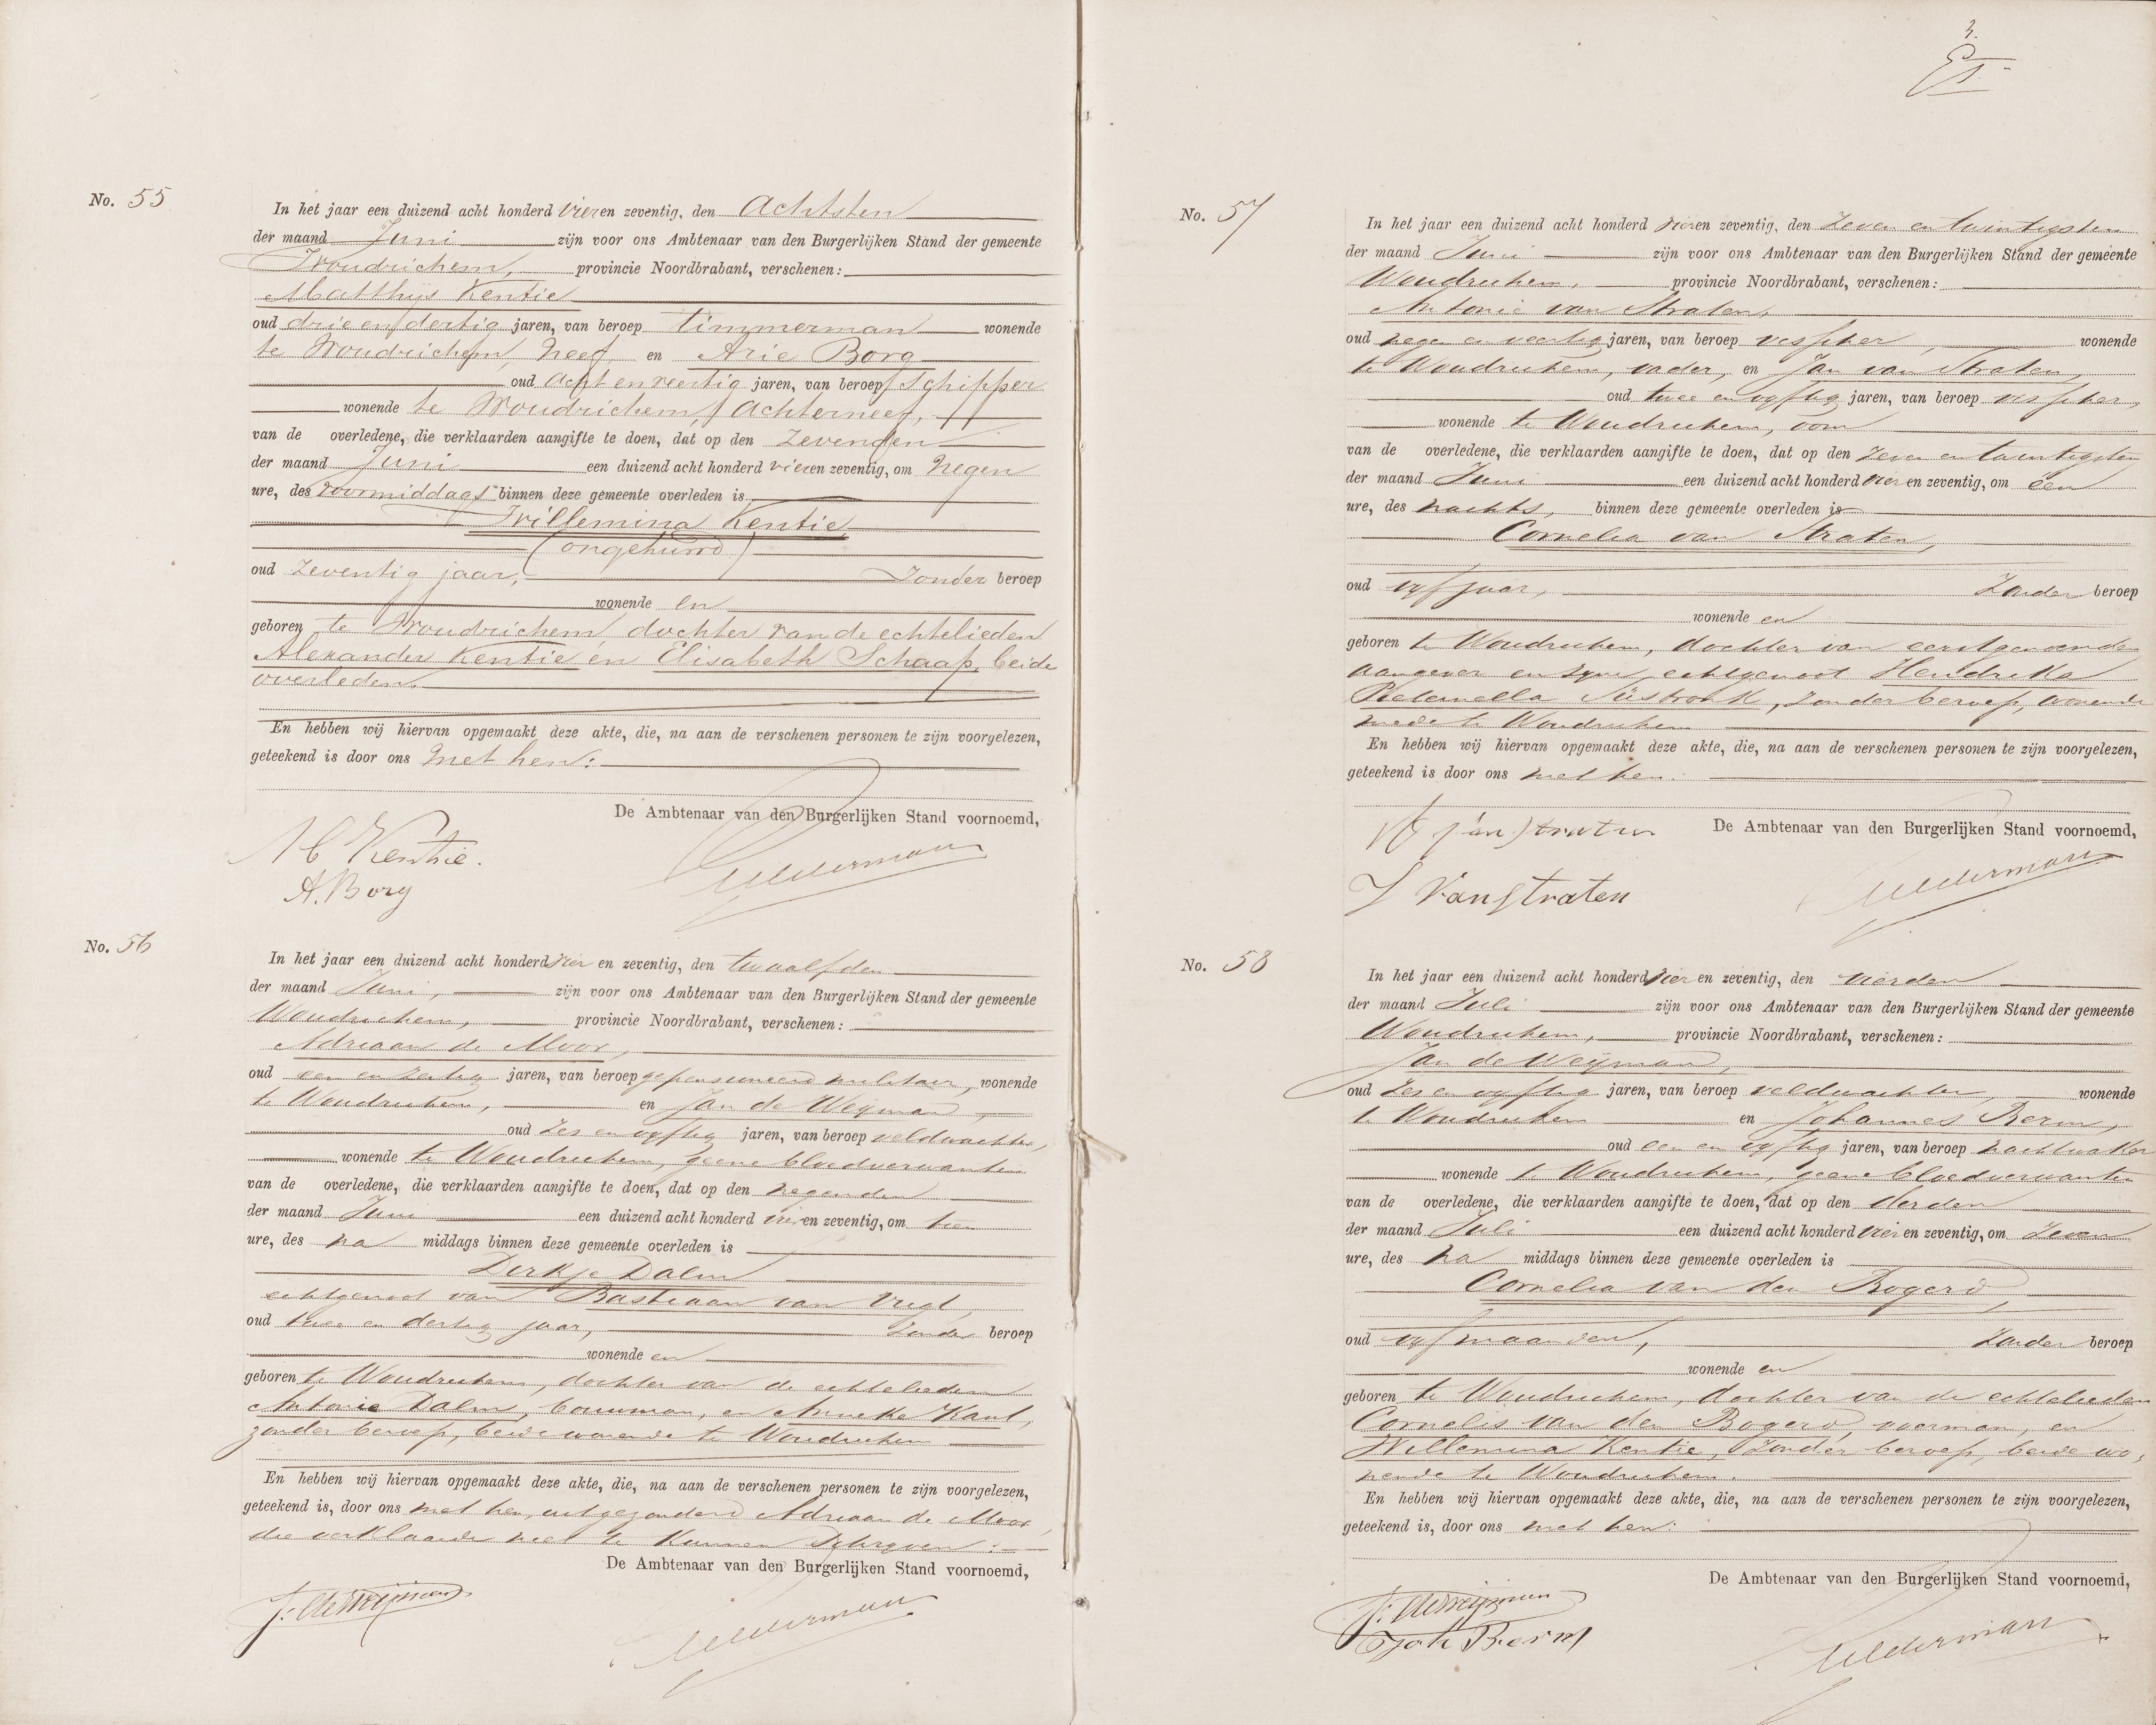 No. 55
In het jaar een duizend acht honderd vier en zeventig, den Achtsten
der maand Juni zijn voor ons Ambtenaar van den Burgerlijken Stand der gemeente
Woudrichem, provincie Noordbrabant, verschenen:
Matthijs Kentie
oud drie en dertig jaren, van beroep timmerman wonende
te Woudrichem, neef en Arie Borg
oud acht en veertig jaren, van beroep Schipper
wonende te Woudrichem, Achterneef,
van de overledene, die verklaarden aangifte te doen, dat op den Zevenden
der maand Juni een duizend acht honderd vier en zeventig, om negen
ure, des voormiddags binnen deze gemeente overleden is
Willemina Kentie
(ongehuwd)
oud Zeventig jaar, Zonder beroep
wonende en
geboren te Woudrichem, dochter van de echtelieden
Alexander Kentie en Elisabeth Schaap, beide
overleden.
En hebben wij hiervan opgemaakt deze akte, die, na aan de verschenen personen te zijn voorgelezen,
geteekend is door ons met hen.
De Ambtenaar van den Burgerlijken Stand voornoemd,
M Kentie.
A. Borg
Gelderman
No. 56
In het jaar een duizend acht honderd vier en zeventig, den twaalfden
der maand Juni, zijn voor ons Ambtenaar van den Burgerlijken Stand der gemeente
Woudrichem, provincie Noordbrabant, verschenen:
Adriaan de Moor,
oud een en zestig jaren, van beroep gepensioneerd militair, wonende
te Woudrichem, en Jan de Weijman,
oud zes en vyftig jaren, van beroep veldwachter,
wonende te Woudrichem, geene bloedverwanten
van de overledene, die verklaarden aangifte te doen, dat op den negenden
der maand Juni een duizend acht honderd vier en zeventig, om tien
ure, des na middags binnen deze gemeente overleden is
Dirkje Dalm
echtgenoot van Bastiaan van Vugt,
oud twee en dertig jaar, zonder beroep
wonende en
geboren te Woudrichem, dochter van de echtelieden
Antonie Dalm, bouwman, en Anneke Kant,
zonder beroep, beide wonende te Woudrichem
En hebben wij hiervan opgemaakt deze akte, die, na aan de verschenen personen te zijn voorgelezen,
geteekend is, door ons met hen, uitgezonderd Adriaan de Moor,
die verklaarde niet te kunnen Schryven.
De Ambtenaar van den Burgerlijken Stand voornoemd,
J: de Weijman
Gelderman
No. 57
In het jaar een duizend acht honderd vier en zeventig, den Zeven en twintigsten
der maand Juni zijn voor ons Ambtenaar van den Burgerlijken Stand der gemeente
Woudrichem, provincie Noordbrabant, verschenen:
Antonie van Straten,
oud negen en veertig jaren, van beroep visscher, wonende
te Woudrichem, vader, en Jan van Straten,
oud twee en vyftig jaren, van beroep visscher,
wonende te Woudrichem, oom
van de overledene, die verklaarden aangifte te doen, dat op den Zeven en twintigsten
der maand Juni een duizend acht honderd vier en zeventig, om één
ure, des nachts, binnen deze gemeente overleden is
Cornelia van Straten,
oud vyf jaar, Zonder beroep
wonende en
geboren te Woudrichem, dochter van eerstgenoemden
aangever en zyne echtgenoot Hendrika
Petronella, zonder beroep, wonende
mede te Woudrichem
En hebben wij hiervan opgemaakt deze akte, die, na aan de verschenen personen te zijn voorgelezen,
geteekend is door ons met hen.
De Ambtenaar van den Burgerlijken Stand voornoemd,
A van Straten
J Van Straten
Gelderman
No. 58
In het jaar een duizend acht honderd vier en zeventig, den vierden
der maand Juli zijn voor ons Ambtenaar van den Burgerlijken Stand der gemeente
Woudrichem, provincie Noordbrabant, verschenen:
Jan de Weijman,
oud zes en vyftig jaren, van beroep veldwachter, wonende
te Woudrichem en Johannes Berm,
oud een en vyftig jaren, van beroep nachtwaker
wonende te Woudrichem, geene bloedverwanten
van de overledene, die verklaarden aangifte te doen, dat op den derden
der maand Juli een duizend acht honderd vier en zeventig, om Zeven
ure, des na middags binnen deze gemeente overleden is
Cornelia van den Bogerd,
oud vyf maanden, Zonder beroep
wonende en
geboren te Woudrichem, dochter van de echtelieden
Cornelis van den Bogerd, voerman, en
Willemina Kentie, zonder beroep, beide wo,
nende te Woudrichem.
En hebben wij hiervan opgemaakt deze akte, die, na aan de verschenen personen te zijn voorgelezen,
geteekend is, door ons met hen.
De Ambtenaar van den Burgerlijken Stand voornoemd,
J: de Weijman
Joh Berm
Gelderman